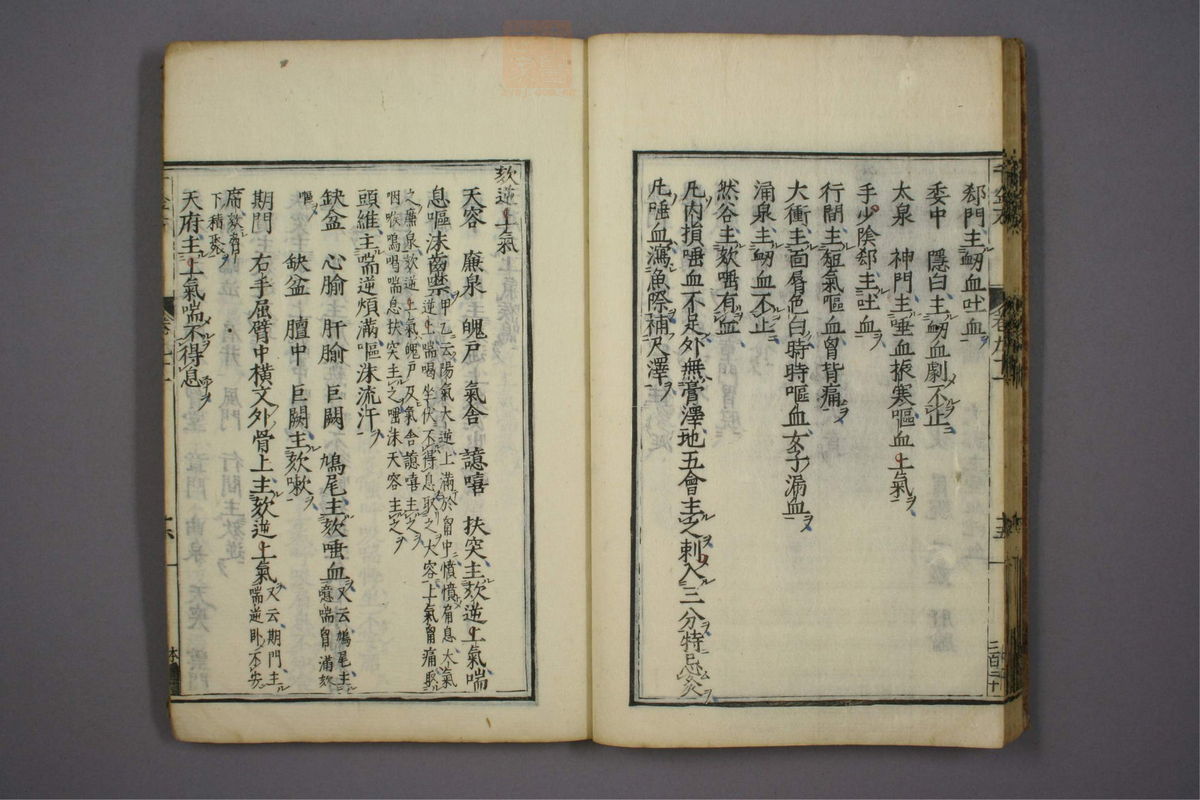 郄門主衂血吐血
委中　隱白主衂血劇不止
太泉　神門主唾血振寒嘔血上氣
手少陰郄主吐血
行間主短氣嘔血胷背痛
大衝主面脣色白時時嘔血女子漏血
涌泉主衂血不止
然谷主欬唾有血
凡肉損唾血不足外無膏澤地五會主之刺入三分特忌灸
凡唾血瀉魚際補尺澤
欬逆上氣
天容　廉泉　魄戸　氣舎　譩嘻　扶突主欬逆上氣喘
息嘔沫齒噤甲乙云陽氣大逆上滿於胷中憤憤肩息大氣
逆上喘喝坐伏不得息取之天容上氣胷痛取
之廉泉欬逆上氣魄戸及氣舎譩嘻主之
咽喉鳴喝喘息扶突主之唾沫天容主之
頭維主喘逆煩滿嘔沫流汗
缺盆　心腧　肝腧　巨闕　鳩尾主欬唾血又云鳩尾主
噫喘胷滿欬
嘔
缺盆　膻中　巨闕主欬嗽
期門　右手屈臂中横文外骨上主欬逆上氣又云期門主
喘逆卧不安
席欬脅
下積聚
天府主上氣喘不得息